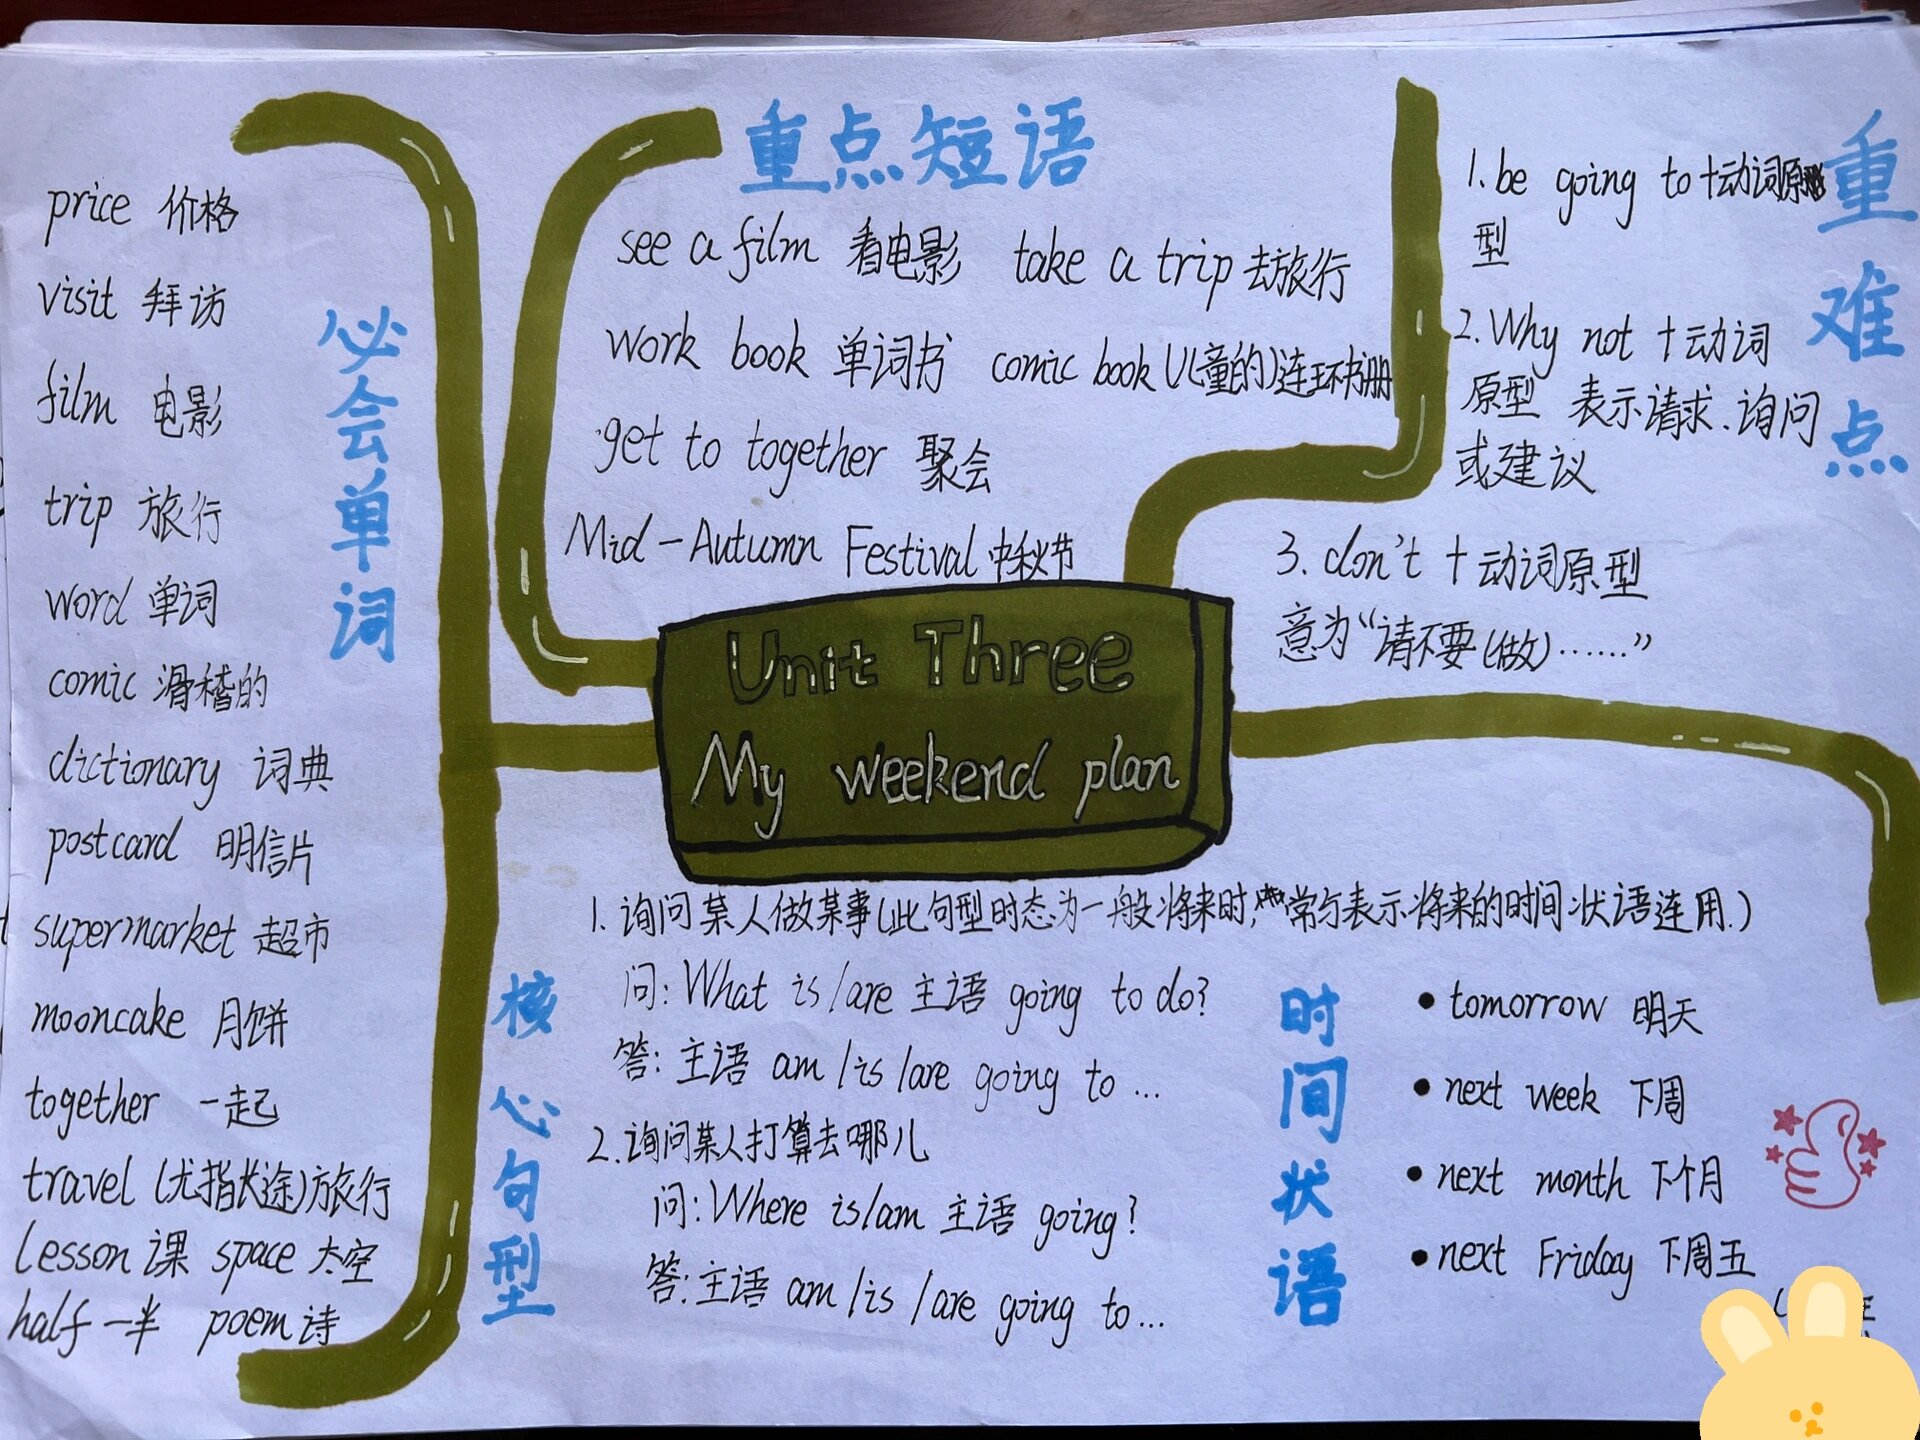 必会单词
price 价格
visit 拜访
film 电影
trip 旅行
word 单词
comic 滑稽的
dictionary 词典
postcard 明信片
supermarket 超市
mooncake 月饼
together 一起
travel (尤指长途)旅行
lesson 课 space 太空
half 一半 poem 诗
重点短语
see a film 看电影 take a trip 去旅行
work book 单词书 comic book (儿童的)连环书册
get to together 聚会
Mid-Autumn Festival 中秋节
重难点
1. be going to +动词原
型
2. Why not +动词
原型 表示请求.询问
或建议
3. don't +动词原型
意为“请不要(做)……”
Unit Three
My weekend plan
核心句型
1. 询问某人做某事(此句型时态为一般将来时,常与表示将来的时间状语连用.)
问: What is/are 主语 going to do?
答: 主语 am/is/are going to ...
2. 询问某人打算去哪儿
问: Where is/am 主语 going?
答: 主语 am/is/are going to...
时间状语
• tomorrow 明天
• next week 下周
• next month 下个月
• next Friday 下周五